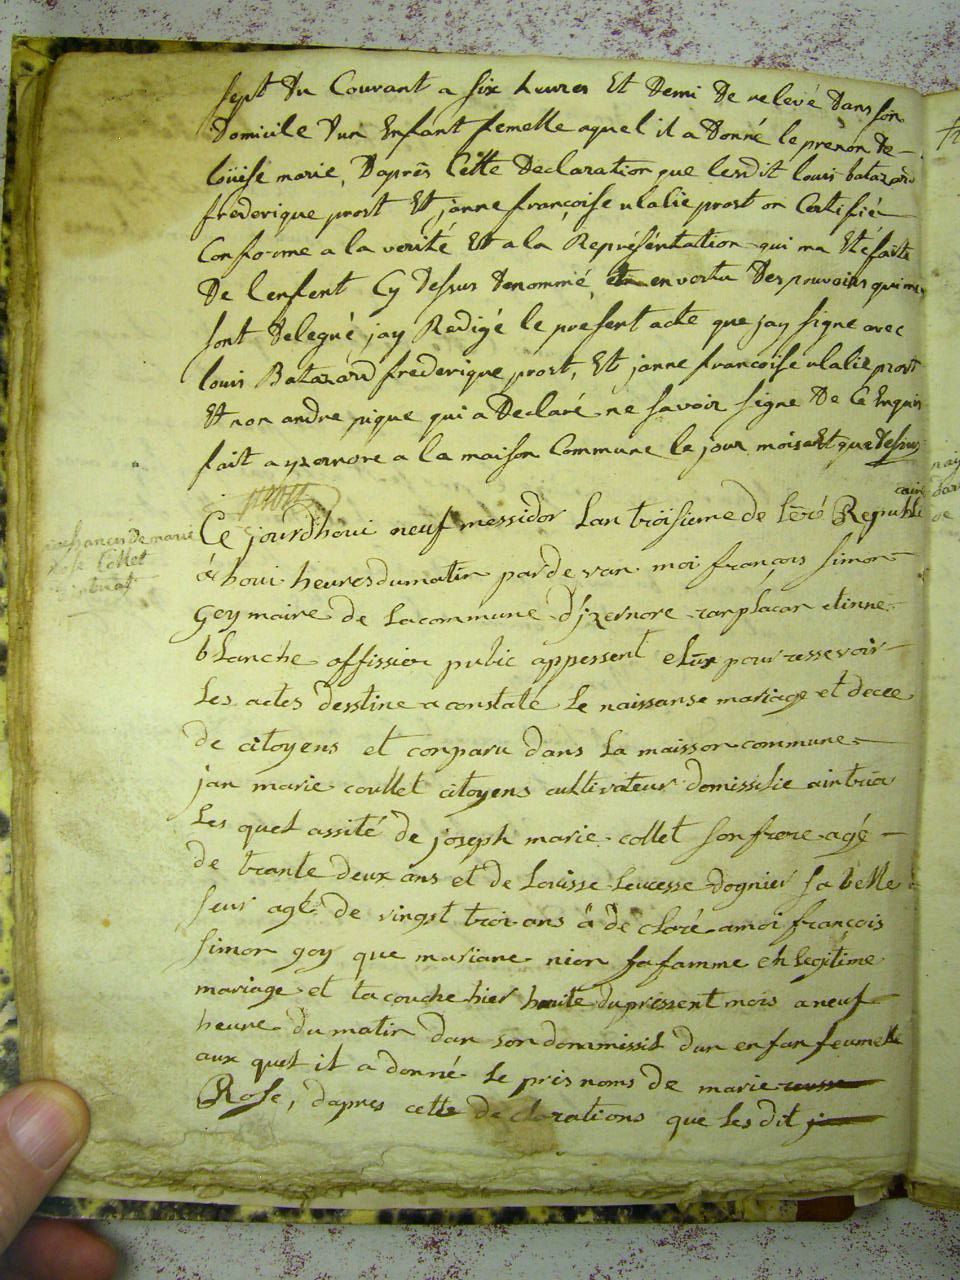 sept Du Courant a six heures Et Demi De relevé Dans son
Domicile D'un Enfant femelle aquel il a Donné le prenon De
loüise marie, Daprés Cette Declaration que lesdit louis batazard
frederique prost Et janne françoise ulalie prost on Certifié
Conforme a la verité Et a la Représéntation qui ma Eté faite
De lenfent Cy Dessus Denommé, en vertu Des pouvoirs qui me
sont Delegué jay Redigé le present acte que jay signe avec
louis Batazard frederique prost, Et janne francoise ulalie prost
Et non andre pique qui a Declaré ne savoir signe De Ce Enquis
fait a yzernore a la maison Commune le jour mois Et que Dessus
prost
Ce jourdhoui neuf messidor Lan troisieme de Léré Republi
caine
naissances De marie
Rose Collet
a houi heures du matin par de van moi françois simon
Goy maire de La commune D'jzernore ranplaçan etinne
blanche offissier pubic appessent elüx pour ressevoir
Les actes desstine a constate Le naissanse mariage et decee
de citoyens et conparu dans La maisson commune
jan marie coullet citoyens cultivateur domissilie
Les quel assité de joseph marie collet son frere agé
de trante deux ans et de Louisse Lucesse dognier sa belle
seur agé de vingst troi ans â de claré a moi françois
simon goy que mariane nion sa famme en legitime
mariage et la couche hier huite du pressent mois a neuf
heure du matin dan son dommissil dun enfan feumelle
aux quel it a donné Le pris noms de marie
Rose, dapres cette de clarations que Les dit j